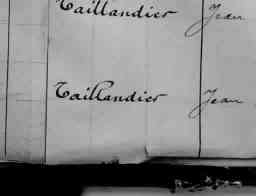 Taillandier Jean
Taillandier Jean